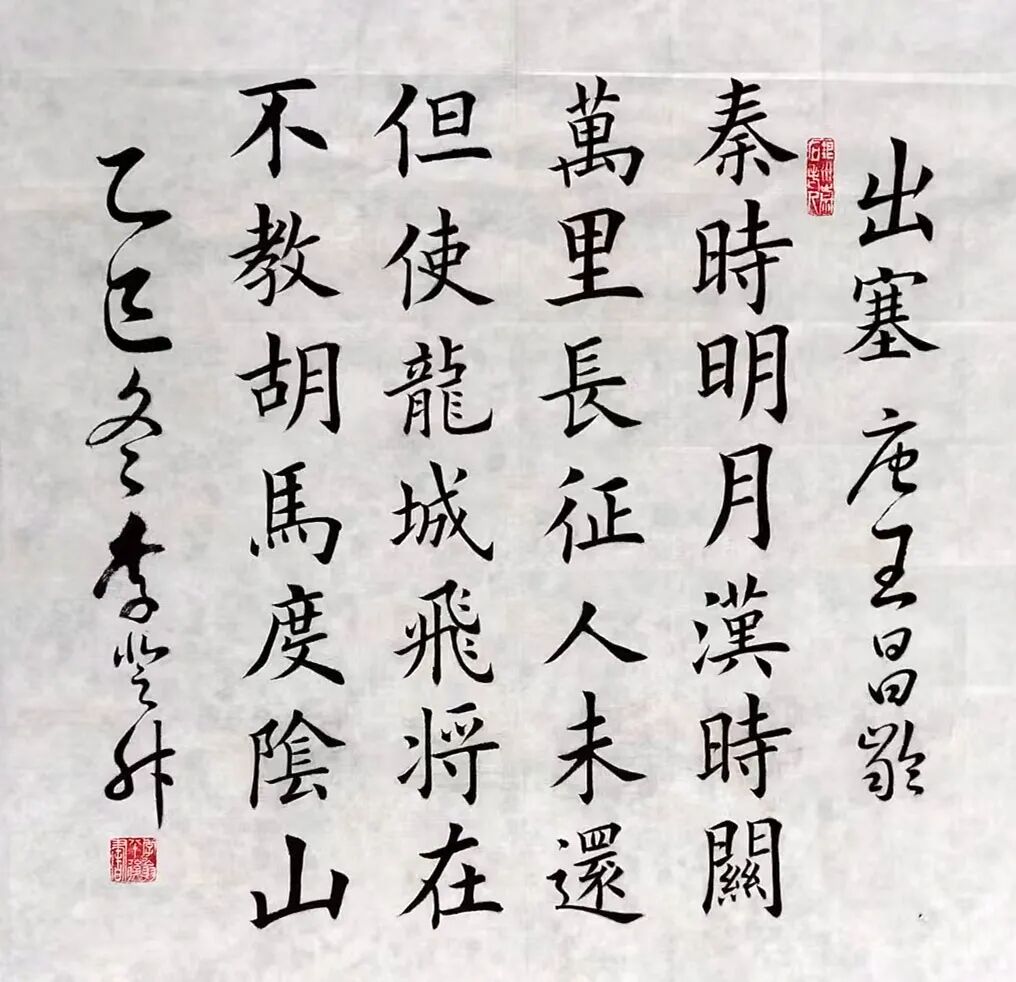 出塞 唐王昌齡
秦時明月漢時關
萬里長征人未還
但使龍城飛将在
不教胡馬度陰山
乙巳冬李登科